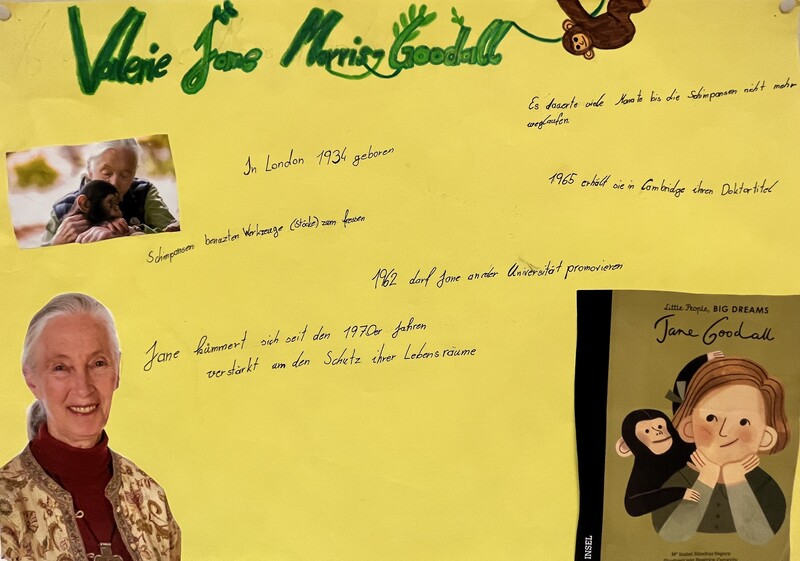 Valerie Jane Morris Goodall
Es dauerte viele Monate bis die Schimpansen nicht mehr
weglaufen.
In London 1934 geboren
1965 erhält sie in Cambridge ihren Doktortitel
Schimpansen benutzten Werkzeuge (Stöcke) zum fressen
1962 darf Jane an der Universität promovieren
Jane kümmert sich seit den 1970er Jahren
verstärkt um den Schutz ihrer Lebensräume
Little People, BIG DREAMS
Jane Goodall
INSEL
Mª Isabel Sánchez Vegara